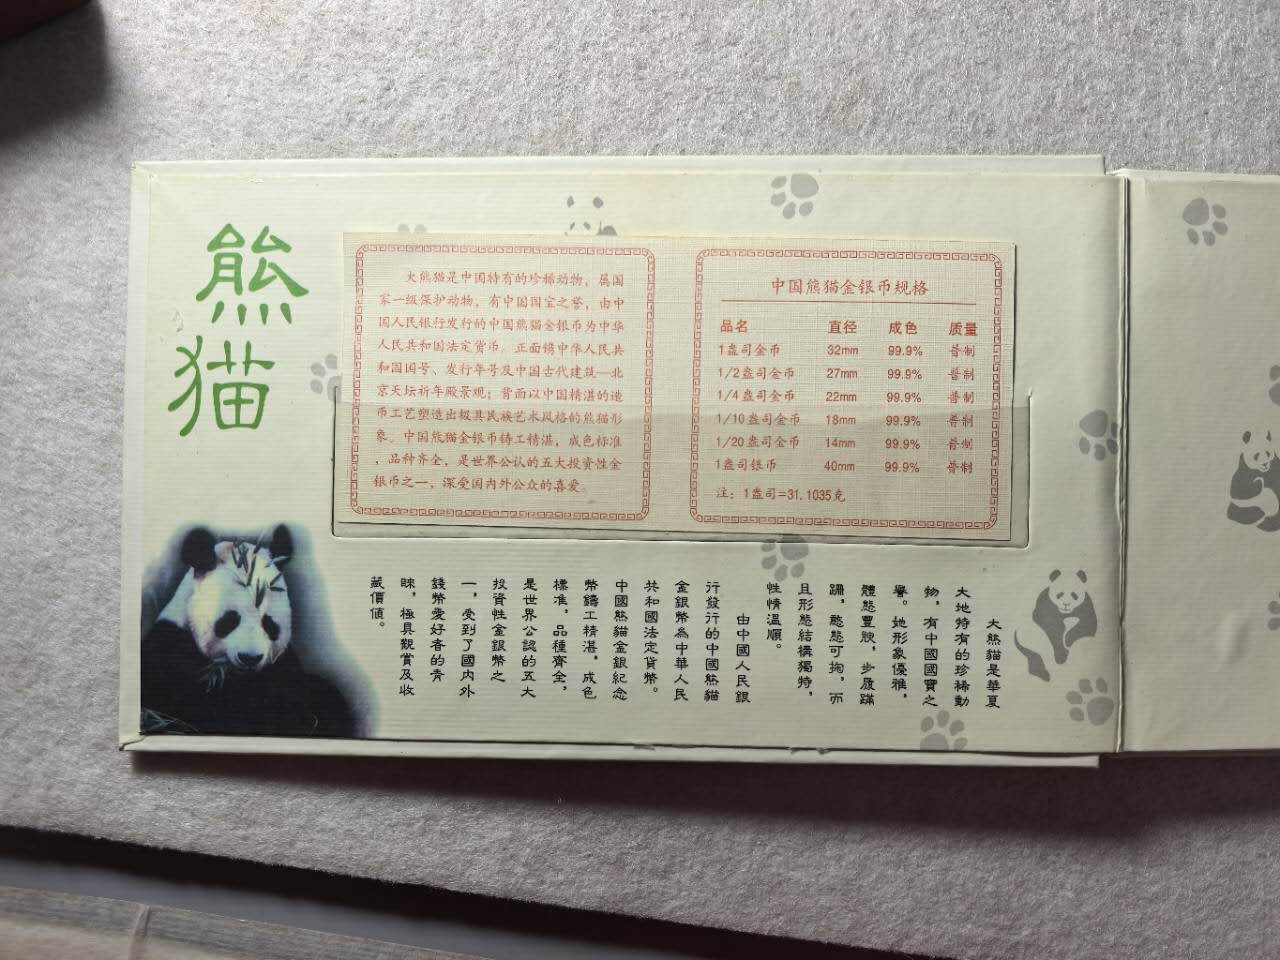 熊
猫
大熊猫是中国特有的珍稀动物，属国
家一级保护动物，有中国国宝之誉，由中
国人民银行发行的中国熊猫金银币为中华
人民共和国法定货币。正面镌中华人民共
和国国号、发行年号及中国古代建筑—北
京天坛祈年殿景观；背面以中国精湛的造
币工艺塑造出极具民族艺术风格的熊猫形
象。中国熊猫金银币铸工精湛，成色标准
，品种齐全，是世界公认的五大投资性金
银币之一，深受国内外公众的喜爱。
中国熊猫金银币规格
品名 直径 成色 质量
1盎司金币 32mm 99.9% 普制
1/2盎司金币 27mm 99.9% 普制
1/4盎司金币 22mm 99.9% 普制
1/10盎司金币 18mm 99.9% 普制
1/20盎司金币 14mm 99.9% 普制
1盎司银币 40mm 99.9% 普制
注：1盎司=31.1035克
大熊貓是華夏
大地特有的珍稀動
物，有中國國寶之
譽。她形象優雅，
體態豐腴，步履蹣
跚，憨態可掬，而
且形態結構獨特，
性情溫順。
由中國人民銀
行發行的中國熊貓
金銀幣為中華人民
共和國法定貨幣。
中國熊貓金銀紀念
幣鑄工精湛，成色
標准，品種齊全，
是世界公認的五大
投資性金銀幣之
一，受到了國内外
錢幣愛好者的青
睞，極具觀賞及收
藏價值。